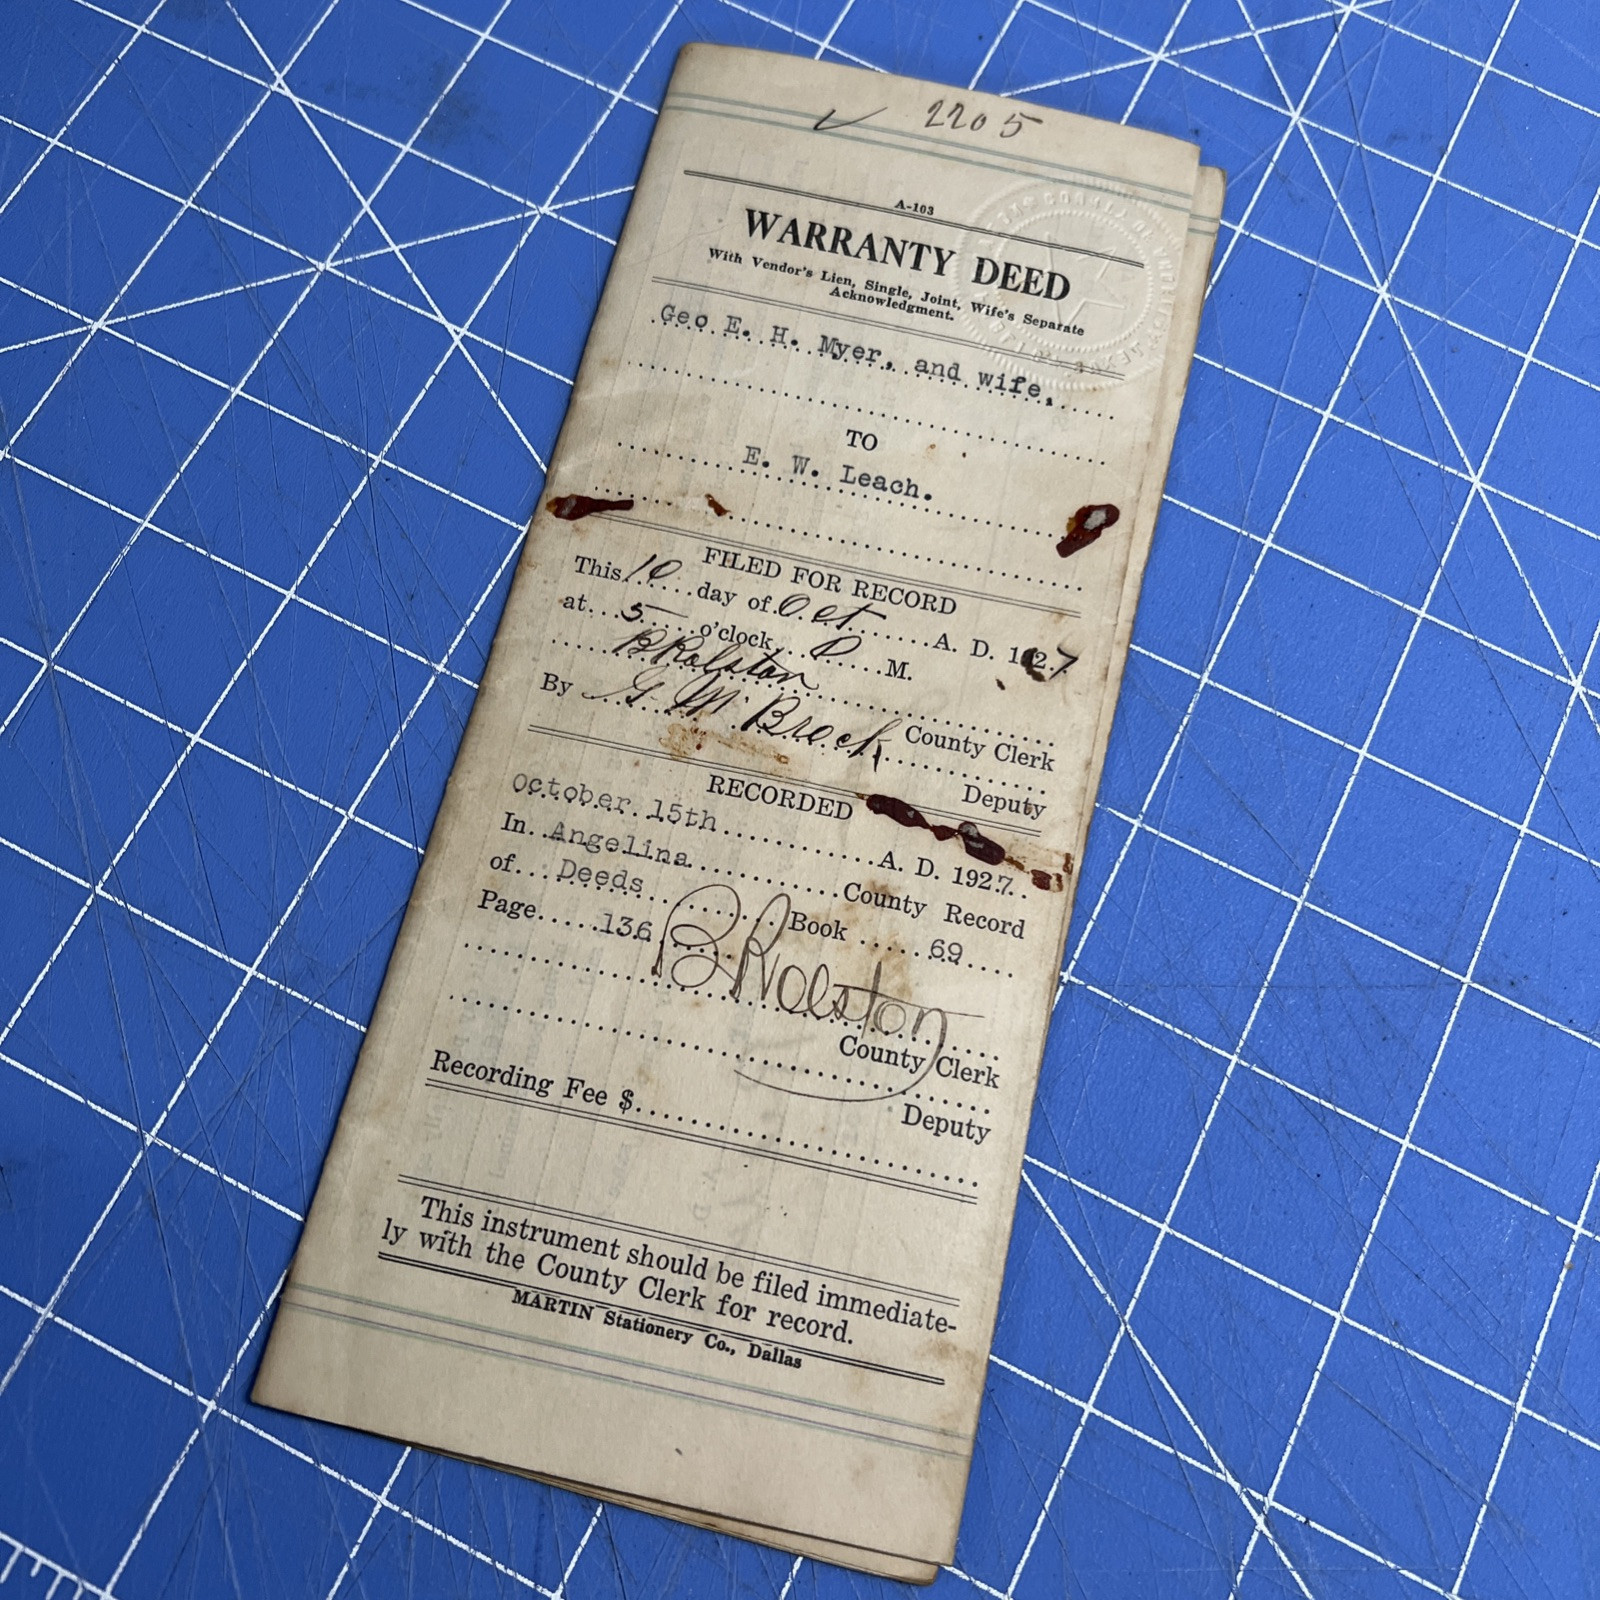 ✓ 2205
A-103
WARRANTY DEED
With Vendor's Lien, Single, Joint, Wife's Separate
Acknowledgment.
Geo E. H. Myer, and wife,
TO
E. W. Leach.
FILED FOR RECORD
This 10 day of Oct A. D. 1927
at 5 o'clock P M.
B Rolston
County Clerk
By G M Brock
Deputy
RECORDED
October 15th A. D. 1927.
In Angelina County Record
of Deeds Book 69
Page 136
B Rolston
County Clerk
Deputy
Recording Fee $
This instrument should be filed immediate-
ly with the County Clerk for record.
MARTIN Stationery Co., Dallas